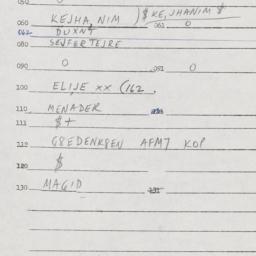 050 0
060 KEJHA, NIM )$KE,JHANIM $
061 0
062 DUXNT
080 SEJFERTEJRE
090 0 091 0
100 ELIJE XX (162,
110 MENADER
111 $+
112 G8EDENK8EN AFM7 KOP
120 $
130 MAGID 131